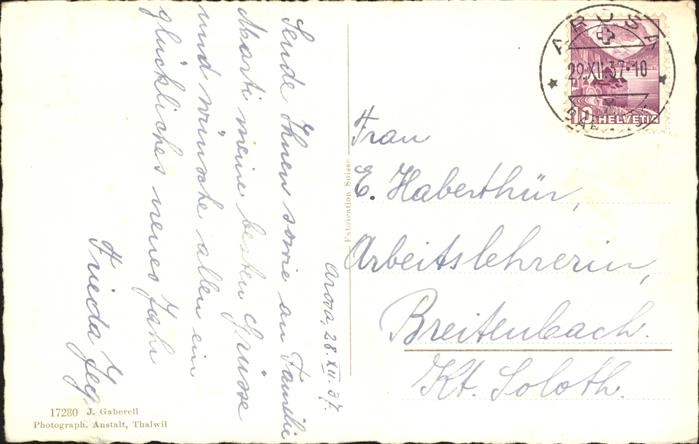 Arosa, 28.XII.37.
Sende Ihnen sowie an Familie
Marti meine besten Grüsse
und wünsche allen ein
glückliches neues Jahr
Frieda
Fabrication Suisse
Frau
E. Haberthür,
Arbeitslehrerin,
Breitenbach.
Kt. Soloth.
AROSA
29.XII.37-10
10 HELVETIA
17280 J. Gaberell
Photograph. Anstalt, Thalwil